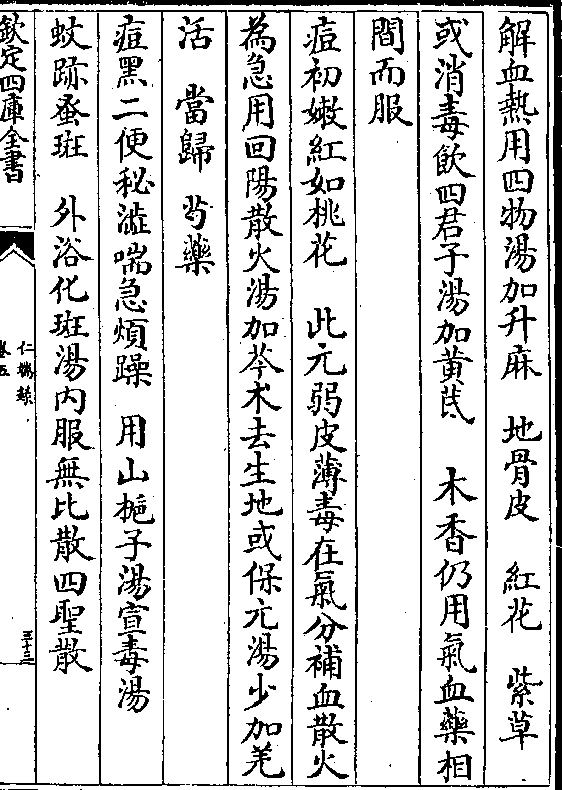 解血熱用四物湯加升麻　地骨皮　紅花　紫草
或消毒飲四君子湯加黄芪　木香仍用氣血藥相
間而服
痘初嫩紅如桃花　此元弱皮薄毒在氣分補血散火
為急用回陽散火湯加芩木去生地或保元湯少加羌
活　當歸　芍藥
痘黑二便秘澁喘急煩躁　用山梔子湯宣毒湯
蚊跡蚤斑　外浴化斑湯内服無比散四聖散
欽定四庫全書
仁端錄
卷五
三十三